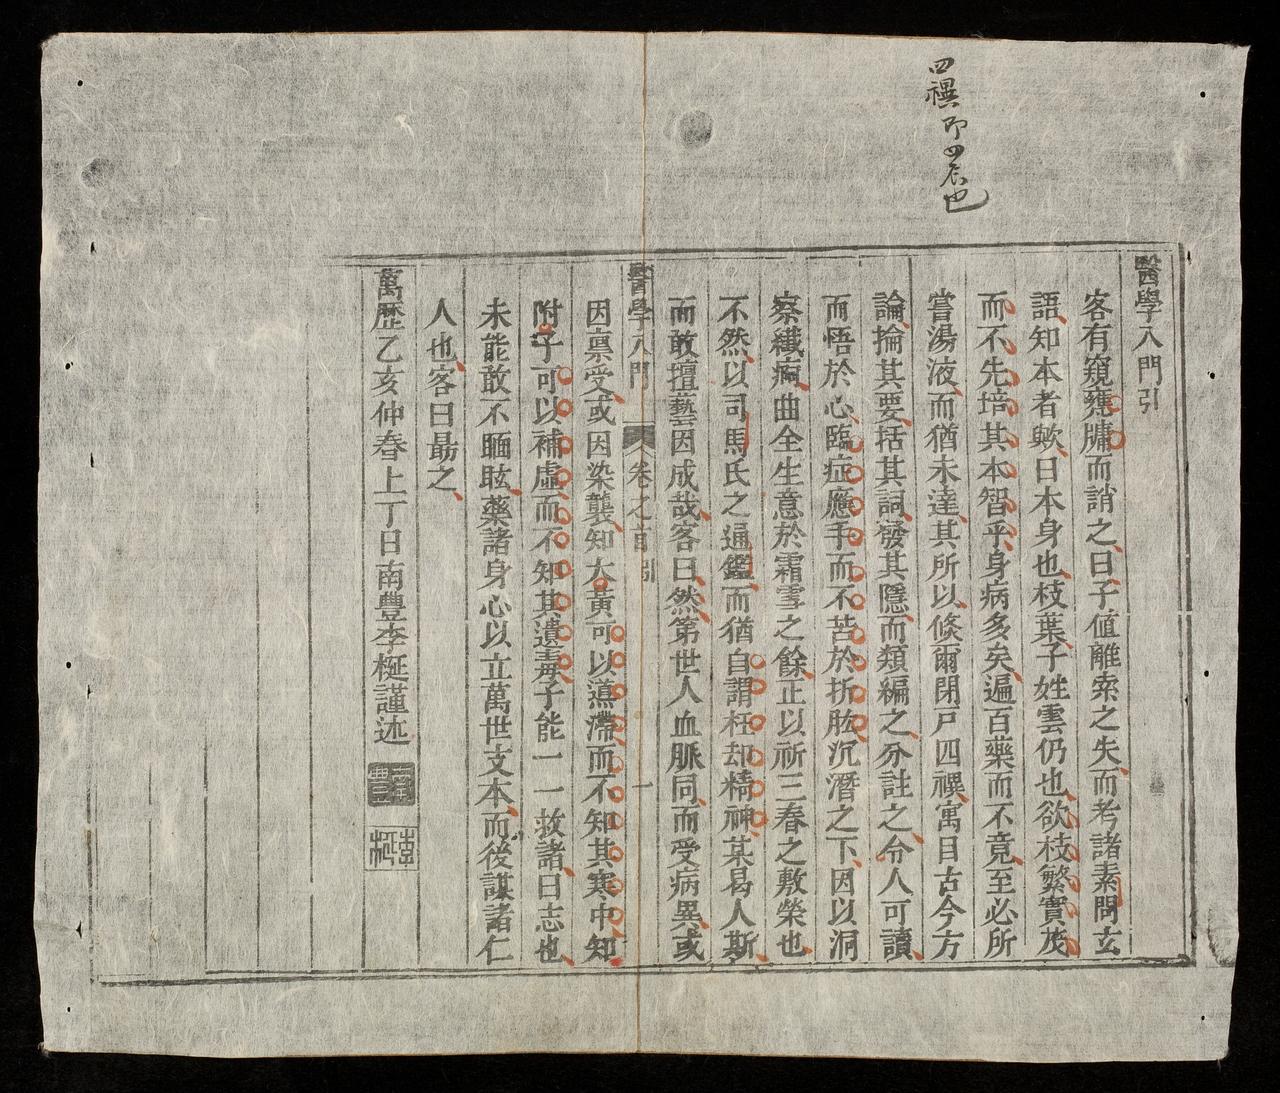 四禩即四辰也
醫學入門引
客有窺甕牖而誚之曰子値離索之失而考諸素問玄
語知本者歟曰本身也枝葉子姓雲仍也欲枝繁實茂
而不先培其本智乎身病多矣遍百藥而不竟至必所
嘗湯液而猶未達其所以倐爾閉戸四禩寓目古今方
論掄其要括其詞發其隱而類編之分註之令人可讀
而悟於心臨症應手而不苦於折肱沉潛之下因以洞
察纖痾曲全生意於霜雪之餘正以祈三春之敷榮也
不然以司馬氏之通鑑而猶自謂枉却精神某曷人斯
而敢擅藝因成哉客曰然第世人血脈同而受病異或
因禀受或因染襲知大黃可以滌滯而不知其寒中知
附子可以補虛而不知其遺毒子能一一救諸曰志也
未能敢不瞑眩藥諸身心以立萬世支本而後謀諸仁
人也客曰朂之
萬歴乙亥仲春上丁日南豐李梴謹述
李梴
醫學入門 卷之首 引 一